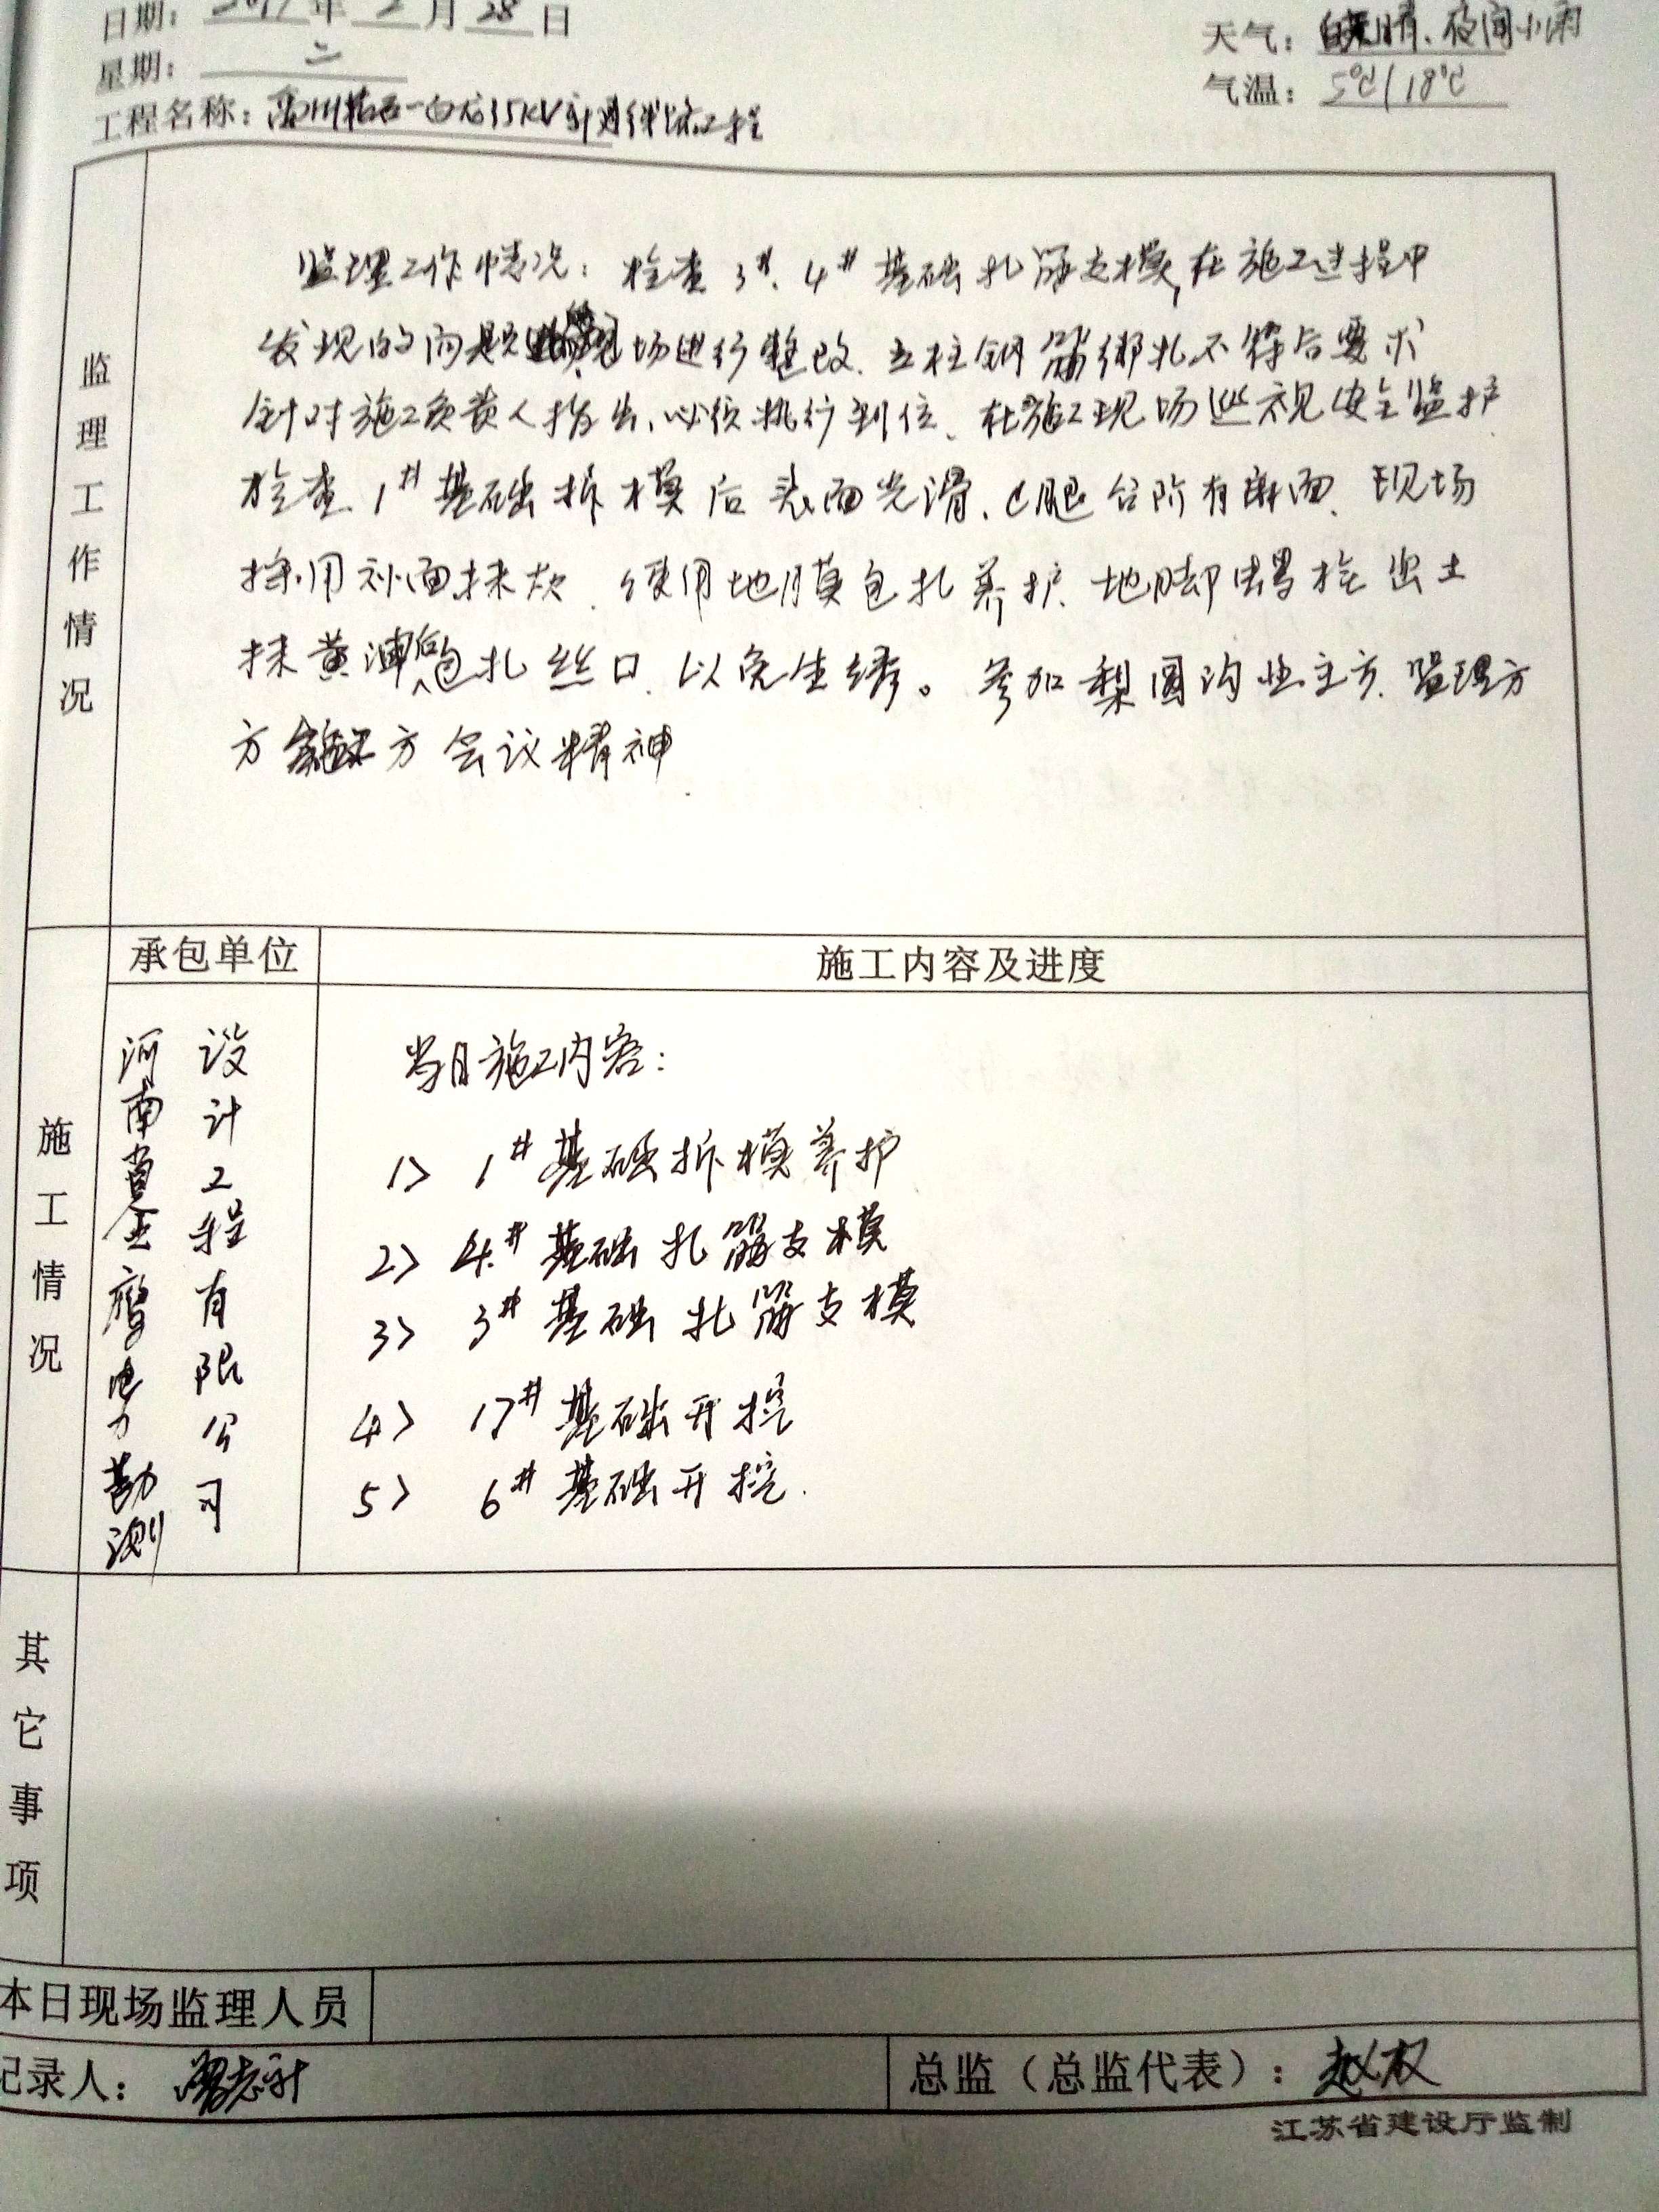 日期：2017年2月28日
天气：白天晴、夜间小雨
星期：二
气温：5℃/18℃
工程名称：禹州 35KV 线路工程
监理工作情况
监理工作情况：检查3#、4#基础扎筋支模，在施工过程中
发现的问题 现场进行整改．立柱钢筋绑扎不符后要求
针对施工负责人指出、必须执行到位、在施工现场巡视安全监护
检查1#基础拆模后表面光滑、C腿台阶有麻面．现场
採用补面抹灰．使用地膜包扎养护．地脚螺栓出土
抹黄油后包扎丝口．以免生绣。参加梨园沟业主方．监理方
方施工方会议精神
承包单位
施工内容及进度
施工情况
河南 鹰电力勘测
设计工程有限公司
当日施工内容：
1> 1#基础拆模养护
2> 4#基础扎筋支模
3> 3#基础扎筋支模
4> 17#基础开挖
5> 6#基础开挖．
其它事项
本日现场监理人员
记录人：
总监（总监代表）：赵权
江苏省建设厅监制